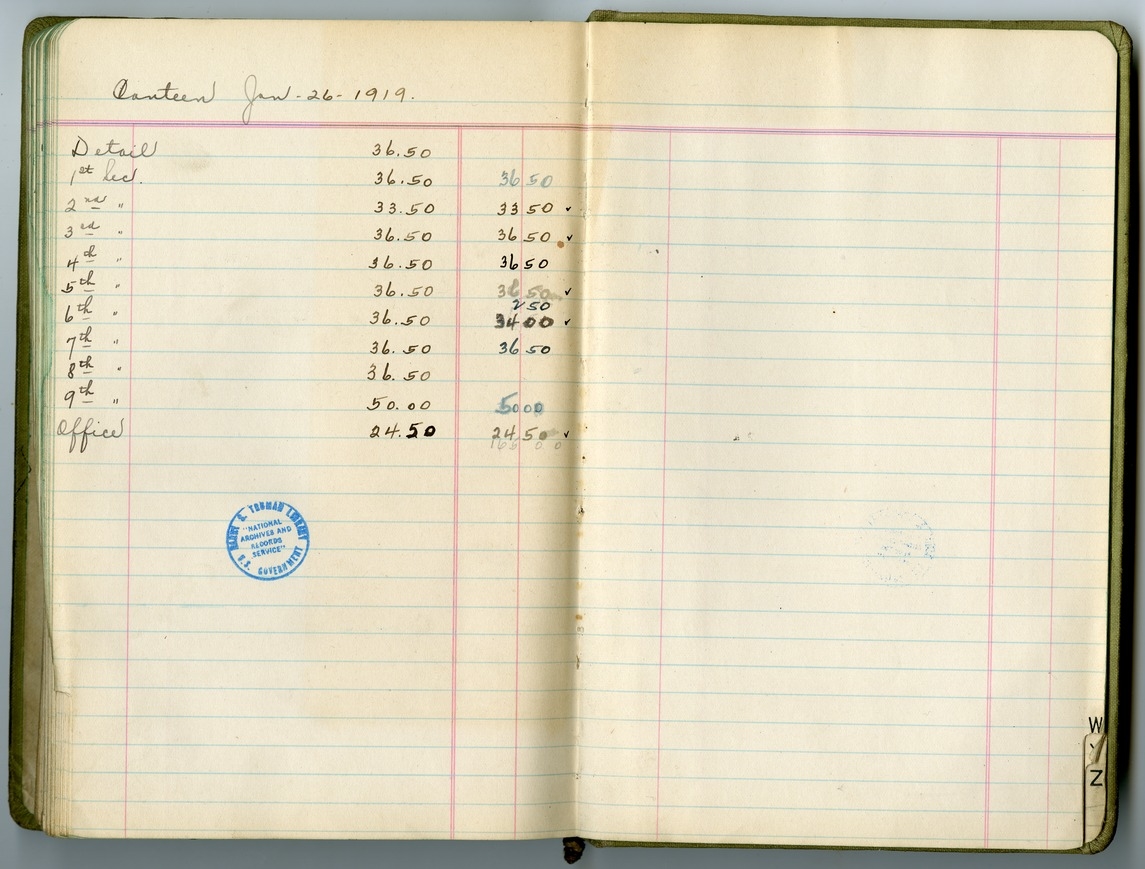 Canteen Jan-26-1919.
Detail 36.50
1st Sec. 36.50 36 50
2nd " 33.50 33 50 ✓
3rd " 36.50 36 50 ✓
4th " 36.50 36 50
5th " 36.50 36 50 ✓
2 50
6th " 36.50 34 00 ✓
7th " 36.50 36 50
8th " 36.50
9th " 50.00 50 00
Office 24.50 24 50 ✓
HARRY S. TRUMAN LIBRARY
"NATIONAL
ARCHIVES AND
RECORDS
SERVICE"
U.S. GOVERNMENT
W
Y
Z